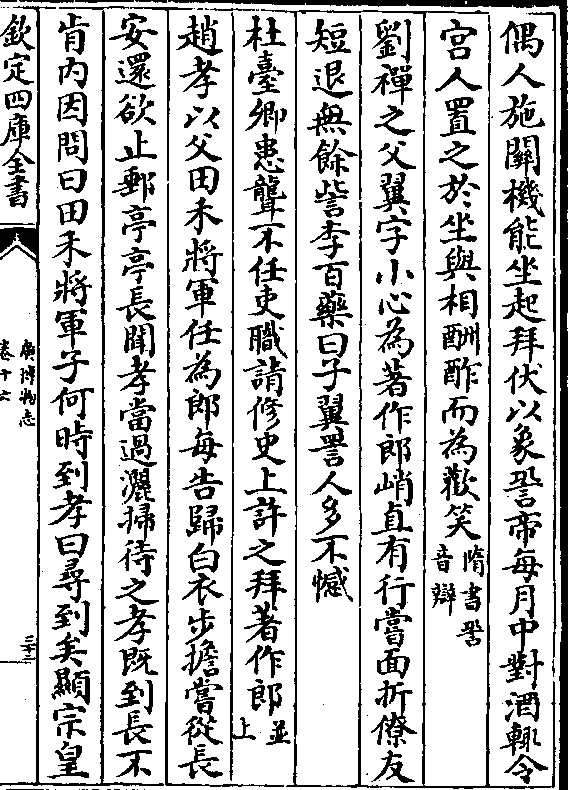 偶人施關機能坐起拜伏以象䛒帝每月中對酒輒令
宫人置之於坐與相酬酢而為歡笑隋書䛒音辯
劉禪之父翼字小心為著作郎峭直有行嘗面折僚友
短退無餘訾李百藥曰子翼詈人多不憾
杜臺卿患聾不任吏職請修史上許之拜著作郎並上
趙孝以父田禾將軍任為郎每告歸白衣步擔嘗從長
安還欲止郵亭亭長聞孝當過灑掃待之孝既到長不
肯内因問曰田禾將軍子何時到孝曰尋到矣顯宗皇
欽定四庫全書
廣博物志
卷十六
三十二